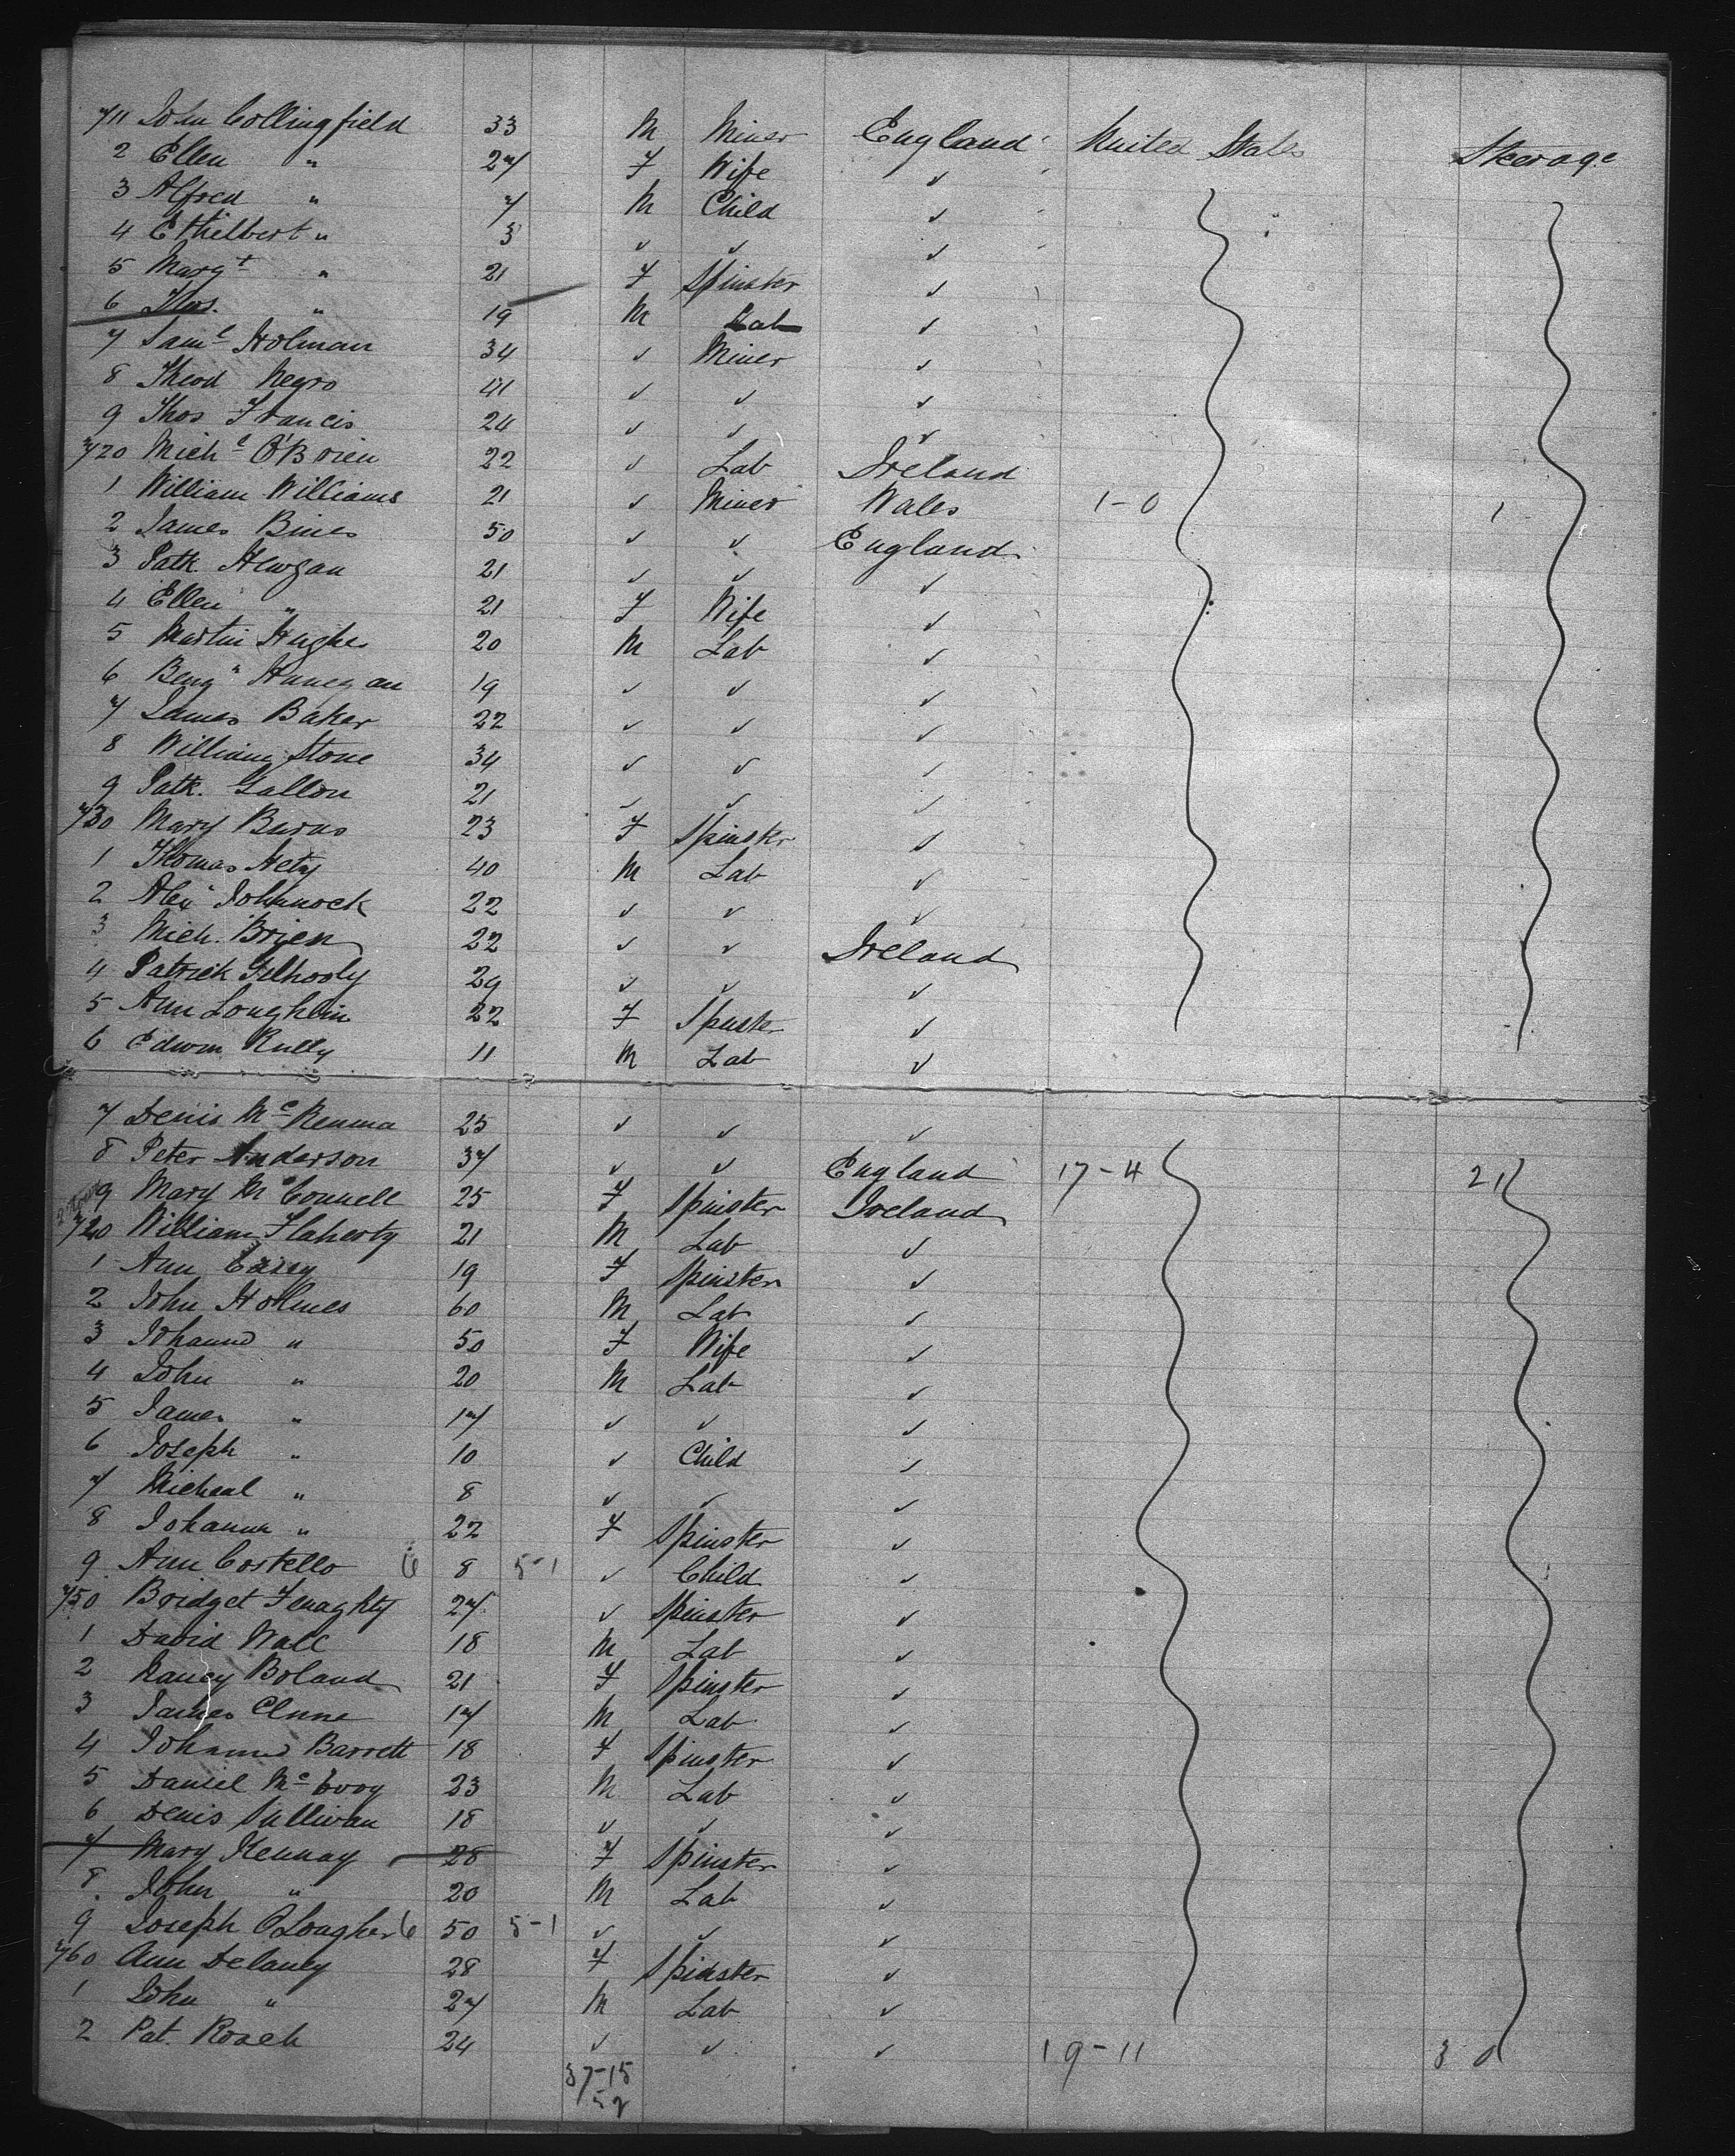 711 John Collingfield 33 M Miner England United States Steerage
2 Ellen " 27 F Wife ✓
3 Alfred " 7 M Child ✓
4 Ethilbert " 3 ✓ ✓ ✓
5 Margt " 21 F Spinster ✓
6 Thos. " 19 M Lab ✓
7 Saml Holman 34 ✓ Miner ✓
8 Theod Negro 41 ✓ ✓ ✓
9 Thos Francis 24 ✓ ✓ ✓
720 Michl O'Brien 22 ✓ Lab Ireland
1 William Williams 21 ✓ Miner Wales 1-0 1
2 James Bines 50 ✓ ✓ England
3 Patk. 21 ✓ ✓ ✓
4 Ellen " 21 F Wife ✓
5 Martin Hughes 20 M Lab ✓
6 Benjn Hanegan 19 ✓ ✓ ✓
7 James Baker 22 ✓ ✓ ✓
8 William Stone 34 ✓ ✓ ✓
9 Patk. Gallon 21 ✓ ✓ ✓
730 Mary Burns 23 F Spinster ✓
1 Thomas Hety 40 M Lab ✓
2 Alex Johnnock 22 ✓ ✓ ✓
3 Mich. Brien 22 ✓ ✓ Ireland
4 Patrick Gilhooly 29 ✓ ✓ ✓
5 Ann Loughlin 22 F Spinster ✓
6 Edwin Rully 11 M Lab ✓
7 Denis McKenna 25 ✓ ✓ ✓
8 Peter Anderson 37 ✓ ✓ England 17-4 21
9 Mary McConnell 25 F Spinster Ireland
720 William Flaherty 21 M Lab ✓
1 Ann Casey 19 F Spinster ✓
2 John Holmes 60 M Lab ✓
3 Johanna " 50 F Wife ✓
4 John " 20 M Lab ✓
5 James " 17 ✓ ✓ ✓
6 Joseph " 10 ✓ Child ✓
7 Micheal " 8 ✓ ✓ ✓
8 Johanna " 22 F Spinster ✓
9 Ann Costello 6 8 5-1 ✓ Child ✓
750 Bridget Fenaghty 27 ✓ Spinster ✓
1 David Wall 18 M Lab ✓
2 Nancy Boland 21 F Spinster ✓
3 James Clune 17 M Lab ✓
4 Johanna Barrett 18 F Spinster ✓
5 Daniel McEvoy 23 M Lab ✓
6 Denis Sullivan 18 ✓ ✓ ✓
7 Mary Kennay 28 F Spinster ✓
8 John " 20 M Lab ✓
9 Joseph O'Lougher 6 50 5-1 ✓ ✓ ✓
760 Ann Delaney 28 F Spinster ✓
1 John " 27 M Lab ✓
2 Pat. Roach 24 ✓ ✓ ✓ 19-11 30
37-15
52